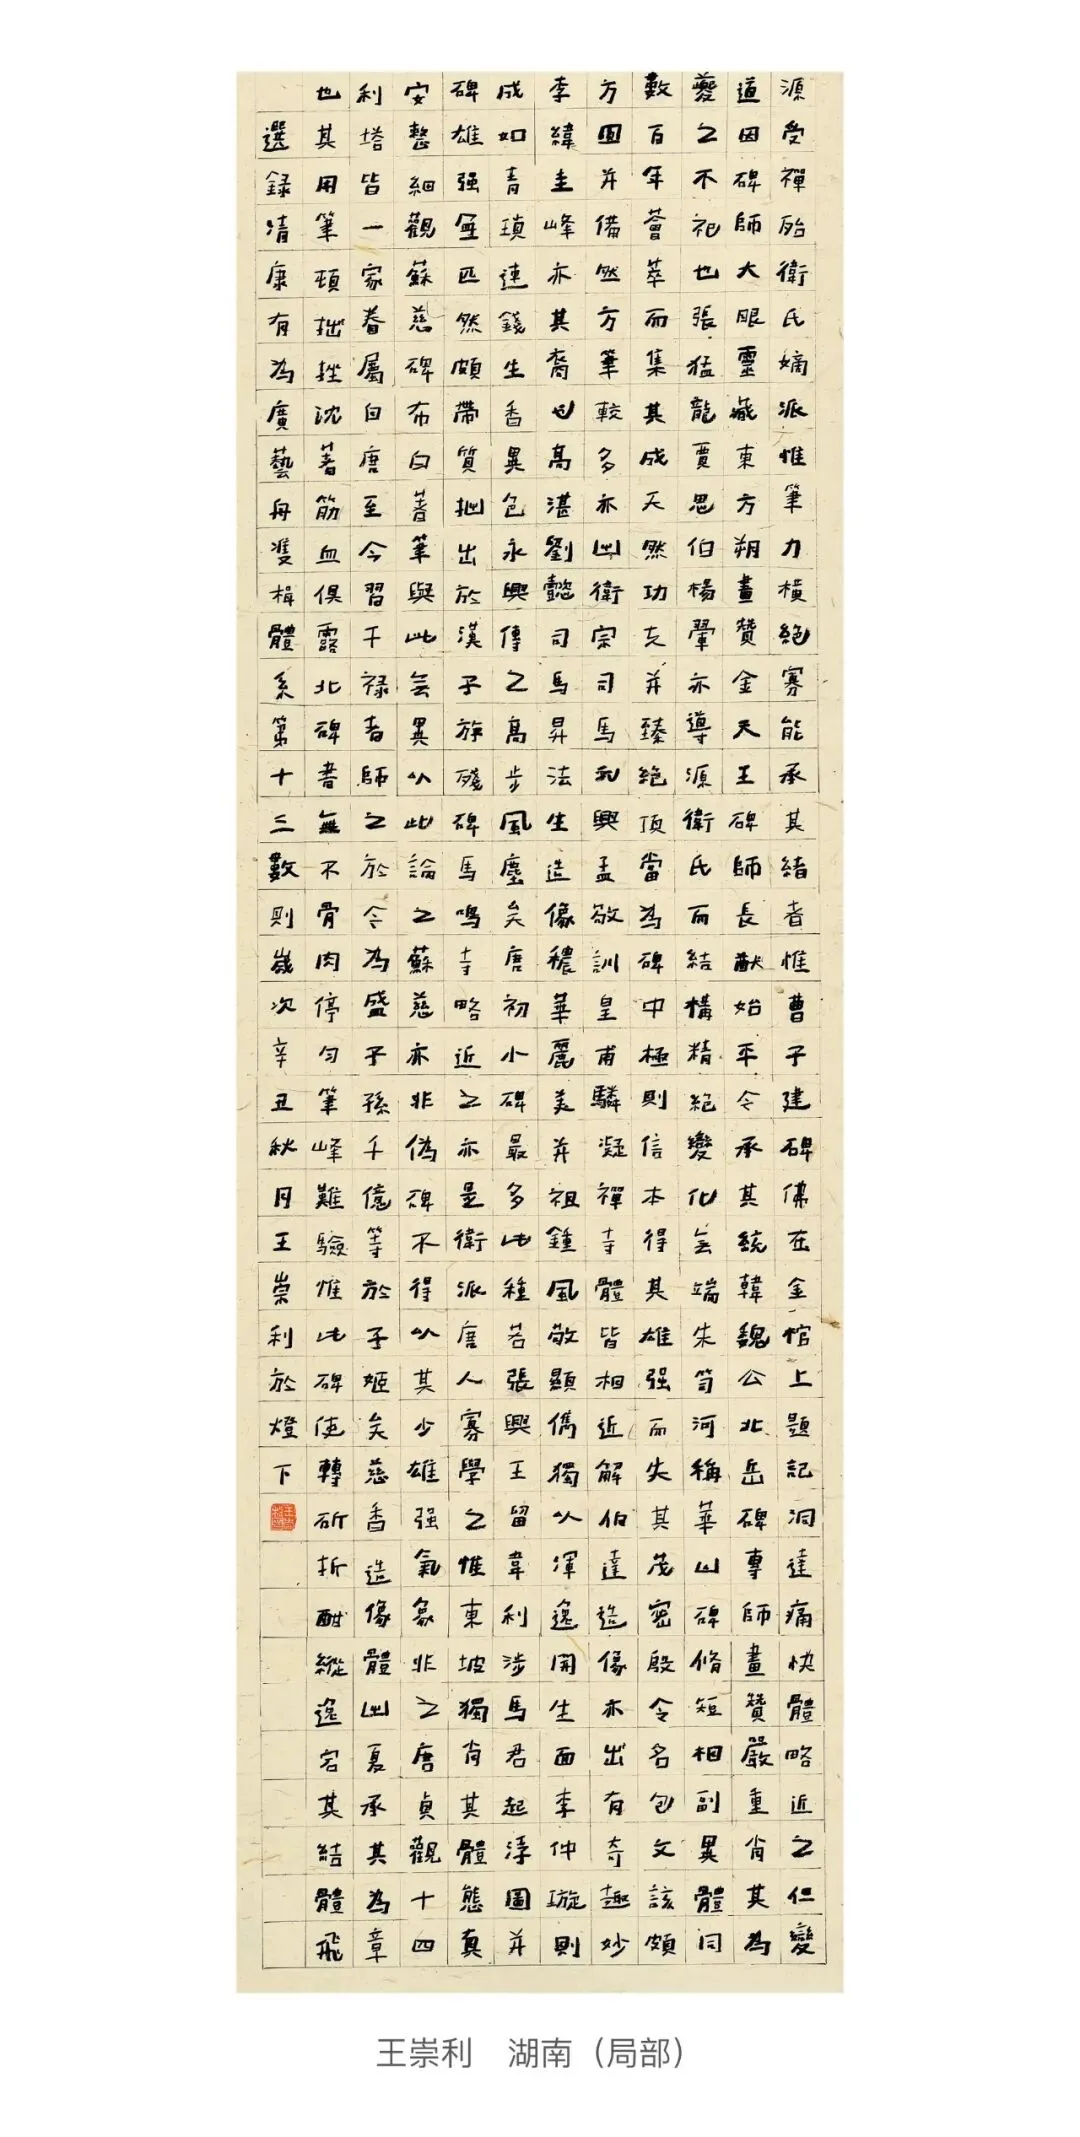 源受禪殆衛氏嫡派惟筆力橫絕寡能承其緒者惟曹子建碑佛在金棺上題記洞達痛快體略近之但變
道因碑師大眼靈藏東方朔畫贊金天王碑師長猷始平令承其統韓魏公北岳碑專師畫贊嚴重肖其為
夔之不祀也張猛龍賈思伯楊翬亦導源衛氏而結構精絕變化無端朱笥河稱華山碑脩短相副異體同
數百年薈萃而集其成天然功夫并臻絕頂當為碑中極則信本得其雄强而失其茂密殷令名包文該頗
方圓并備然方筆較多亦出衛宗司馬元興孟敬訓皇甫驎凝禪寺體皆相近解伯達造像亦出有奇趣妙
李緯圭峰亦其裔也高湛劉懿司馬昇法生造像穠華麗美并祖鍾風敬顯儁獨以渾逸開生面李仲璇則
成如青瑣連錢生香異色永興傳之高步風塵矣唐初小碑最多此種若張興王留韋利涉馬君起浮圖并
碑雄强無匹然頗帶質拙出於漢子斿殘碑馬鳴寺略近之亦是衛派唐人寡學之惟東坡獨肖其體態真
安整細觀蘇慈碑布白著筆與此無異以此論之蘇慈亦非偽碑不得以其少雄强氣象非之唐貞觀十四
利塔皆一家眷屬自唐至今習干祿者師之於今為盛子孫千億等於子姬矣慈香造像體出夏承其為章
也其用筆頓拙挫沈著筋血俱露北碑書無不骨肉停勻筆峰難驗惟此碑使轉斫折酣縱逸宕其結體飛
選錄清康有為廣藝舟雙楫體系第十三數則歲次辛丑秋月王崇利於燈下
王崇利　湖南（局部）